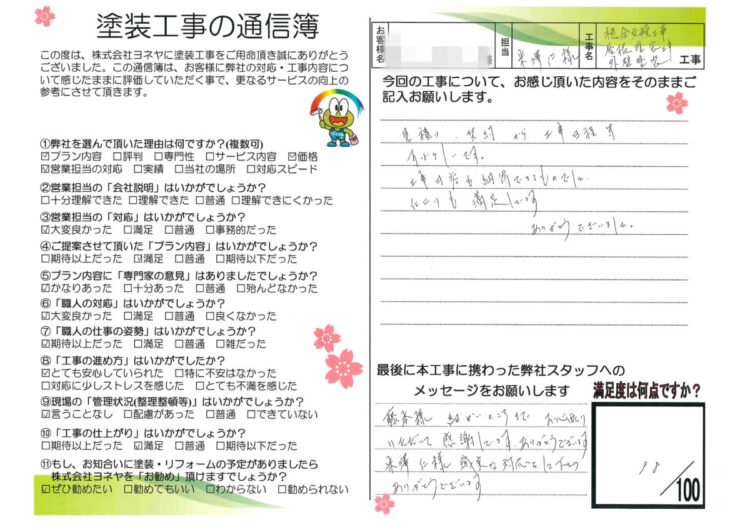 塗装工事の通信簿
この度は、株式会社ヨネヤに塗装工事をご用命頂き誠にありがとう
ございました。この通信簿は、お客様に弊社の対応・工事内容につ
いて感じたままに評価していただく事で、更なるサービスの向上の
参考にさせて頂きます。
①弊社を選んで頂いた理由は何ですか?(複数可)
☑プラン内容 □評判 □専門性 □サービス内容 ☑価格
☑営業担当の対応 □実績 □当社の場所 □対応スピード
②営業担当の「会社説明」はいかがでしょうか?
□十分理解できた □理解できた □普通 □理解できにくかった
③営業担当の「対応」はいかがでしょうか?
☑大変良かった □満足 □普通 □事務的だった
④ご提案させて頂いた「プラン内容」はいかがでしょうか?
□期待以上だった ☑満足 □普通 □期待以下だった
⑤プラン内容に「専門家の意見」はありましたでしょうか?
☑かなりあった □十分あった □普通 □殆んどなかった
⑥「職人の対応」はいかがでしょうか?
☑大変良かった □満足 □普通 □良くなかった
⑦「職人の仕事の姿勢」はいかがでしょうか?
☑期待以上だった □満足 □普通 □雑だった
⑧「工事の進め方」はいかがでしたか?
☑とても安心していられた □特に不安はなかった
□対応に少しストレスを感じた □とても不満を感じた
⑨現場の「管理状況(整理整頓等)」はいかがでしょうか?
☑言うことなし □配慮があった □普通 □できていない
⑩「工事の仕上がり」はいかがでしょうか?
□期待以上だった ☑満足 □普通 □期待以下だった
⑪もし、お知合いに塗装・リフォームの予定がありましたら
株式会社ヨネヤを「お勧め」頂けますでしょうか?
☑ぜひ勧めたい □勧めてもいい □わからない □勧められない
お客様名 様 担当 様 工事名 外壁塗装 工事
今回の工事について、お感じ頂いた内容をそのままご
記入お願いします。
見積り、契約から工事日程等
工事内容も納得できるものでした。
仕上りも満足しています
ありがとうございました。
最後に本工事に携わった弊社スタッフへの
メッセージをお願いします
満足度は何点ですか?
いただいて感謝しています。ありがとうございます
ありがとうございます
98/100